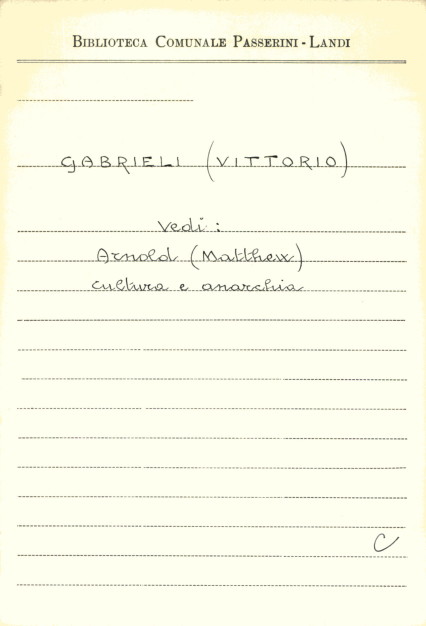 BIBLIOTECA COMUNALE PASSERINI - LANDI
GABRIELI (VITTORIO)
Vedi :
Arnold (Matthew)
cultura e anarchia
C